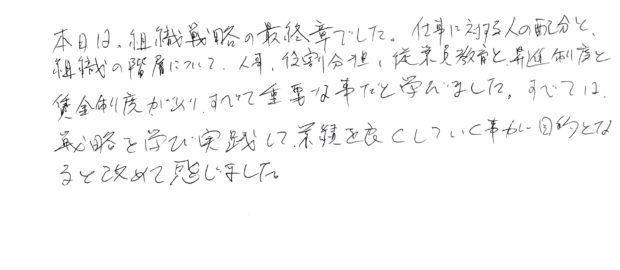 本日は、組織戦略の最終章でした。仕事に対する人の配分と、
組織の階層について、人事、役割分担、従業員教育と昇進制度と
賃金制度があり、すべて重要な事だと学んでました。すべては、
戦略を学び実践して業績を良くしていく事が目的とな
ると改めて感じました。